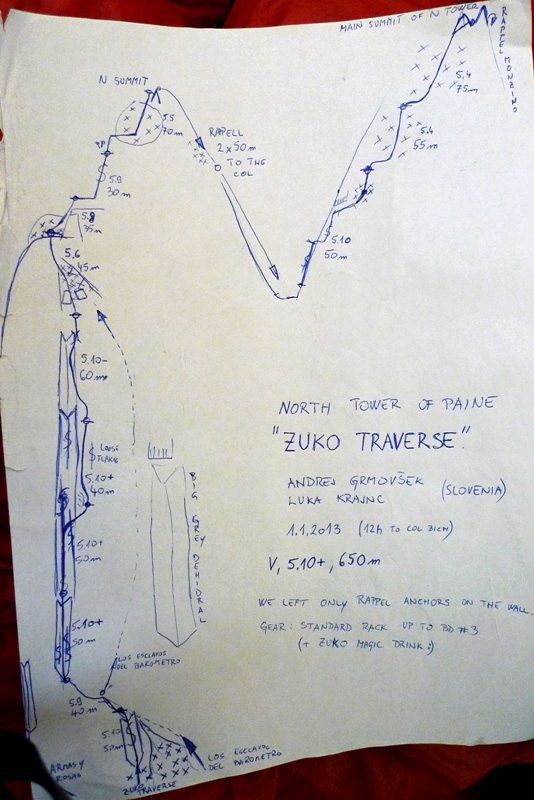 MAIN SUMMIT OF N TOWER
RAPPEL MONZINO
5.4
75m
5.4
55m
5.10
50m
N SUMMIT
RAPELL
2x50m
TO THE
COL
5.5
70m
5.9
30m
5.8
35m
5.6
45m
5.10-
60m
LOOSE
FLAKE
5.10+
40m
5.10+
50m
5.10+
50m
BIG GREY DEHIDRAL
LOS ESCLAVOS
DEL BAROMETRO
5.9
40m
5.10
50m
LOS ESCLAVOS
DEL BAROMETRO
ZUKO
TRAVERSE
ARMAS Y
ROSAS
NORTH TOWER OF PAINE
"ZUKO TRAVERSE"
ANDREJ GRMOVŠEK
LUKA KRAJNC (SLOVENIA)
1.1.2013 (12h TO COL BICH)
V, 5.10+, 650m
WE LEFT ONLY RAPPEL ANCHORS ON THE WALL.
GEAR: STANDARD RACK UP TO BD #3
(+ ZUKO MAGIC DRINK :)